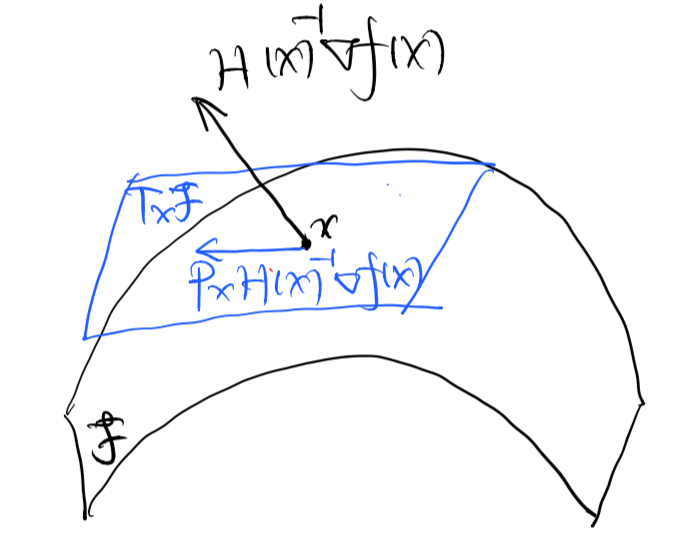 H(x)⁻¹∇f(x)
TₓF
x
PₓH(x)⁻¹∇f(x)
F